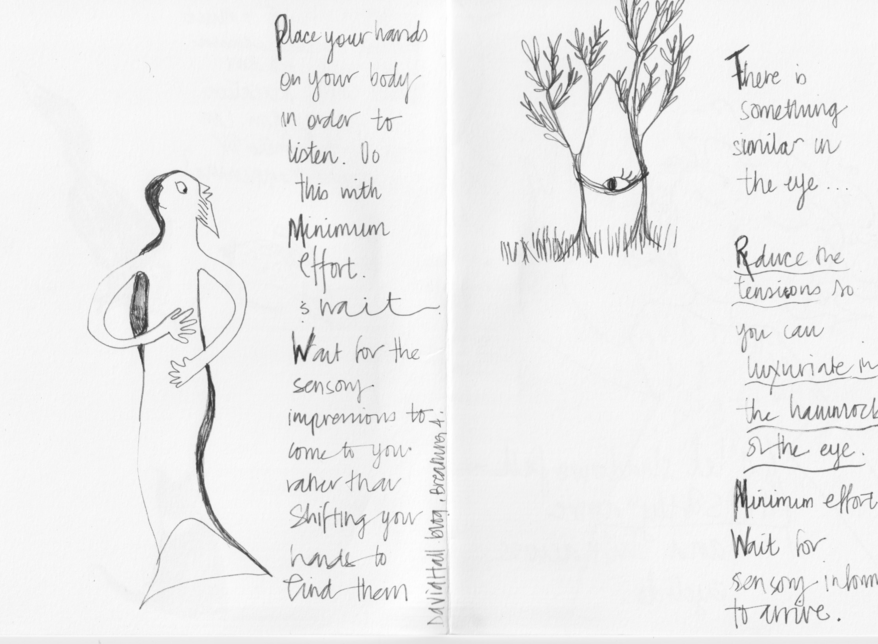 Place your hands
on your body
in order to
listen. Do
this with
Minimum
effort.
& wait
Wait for the
sensory
impressions to
come to you
rather than
Shifting your
hands to
find them
David Hall blog, Breathing 4.
There is
something
similar in
the eye...
Reduce the
tensions so
you can
luxuriate in
the hammock
of the eye.
Minimum effort
Wait for
sensory inform
to arrive.